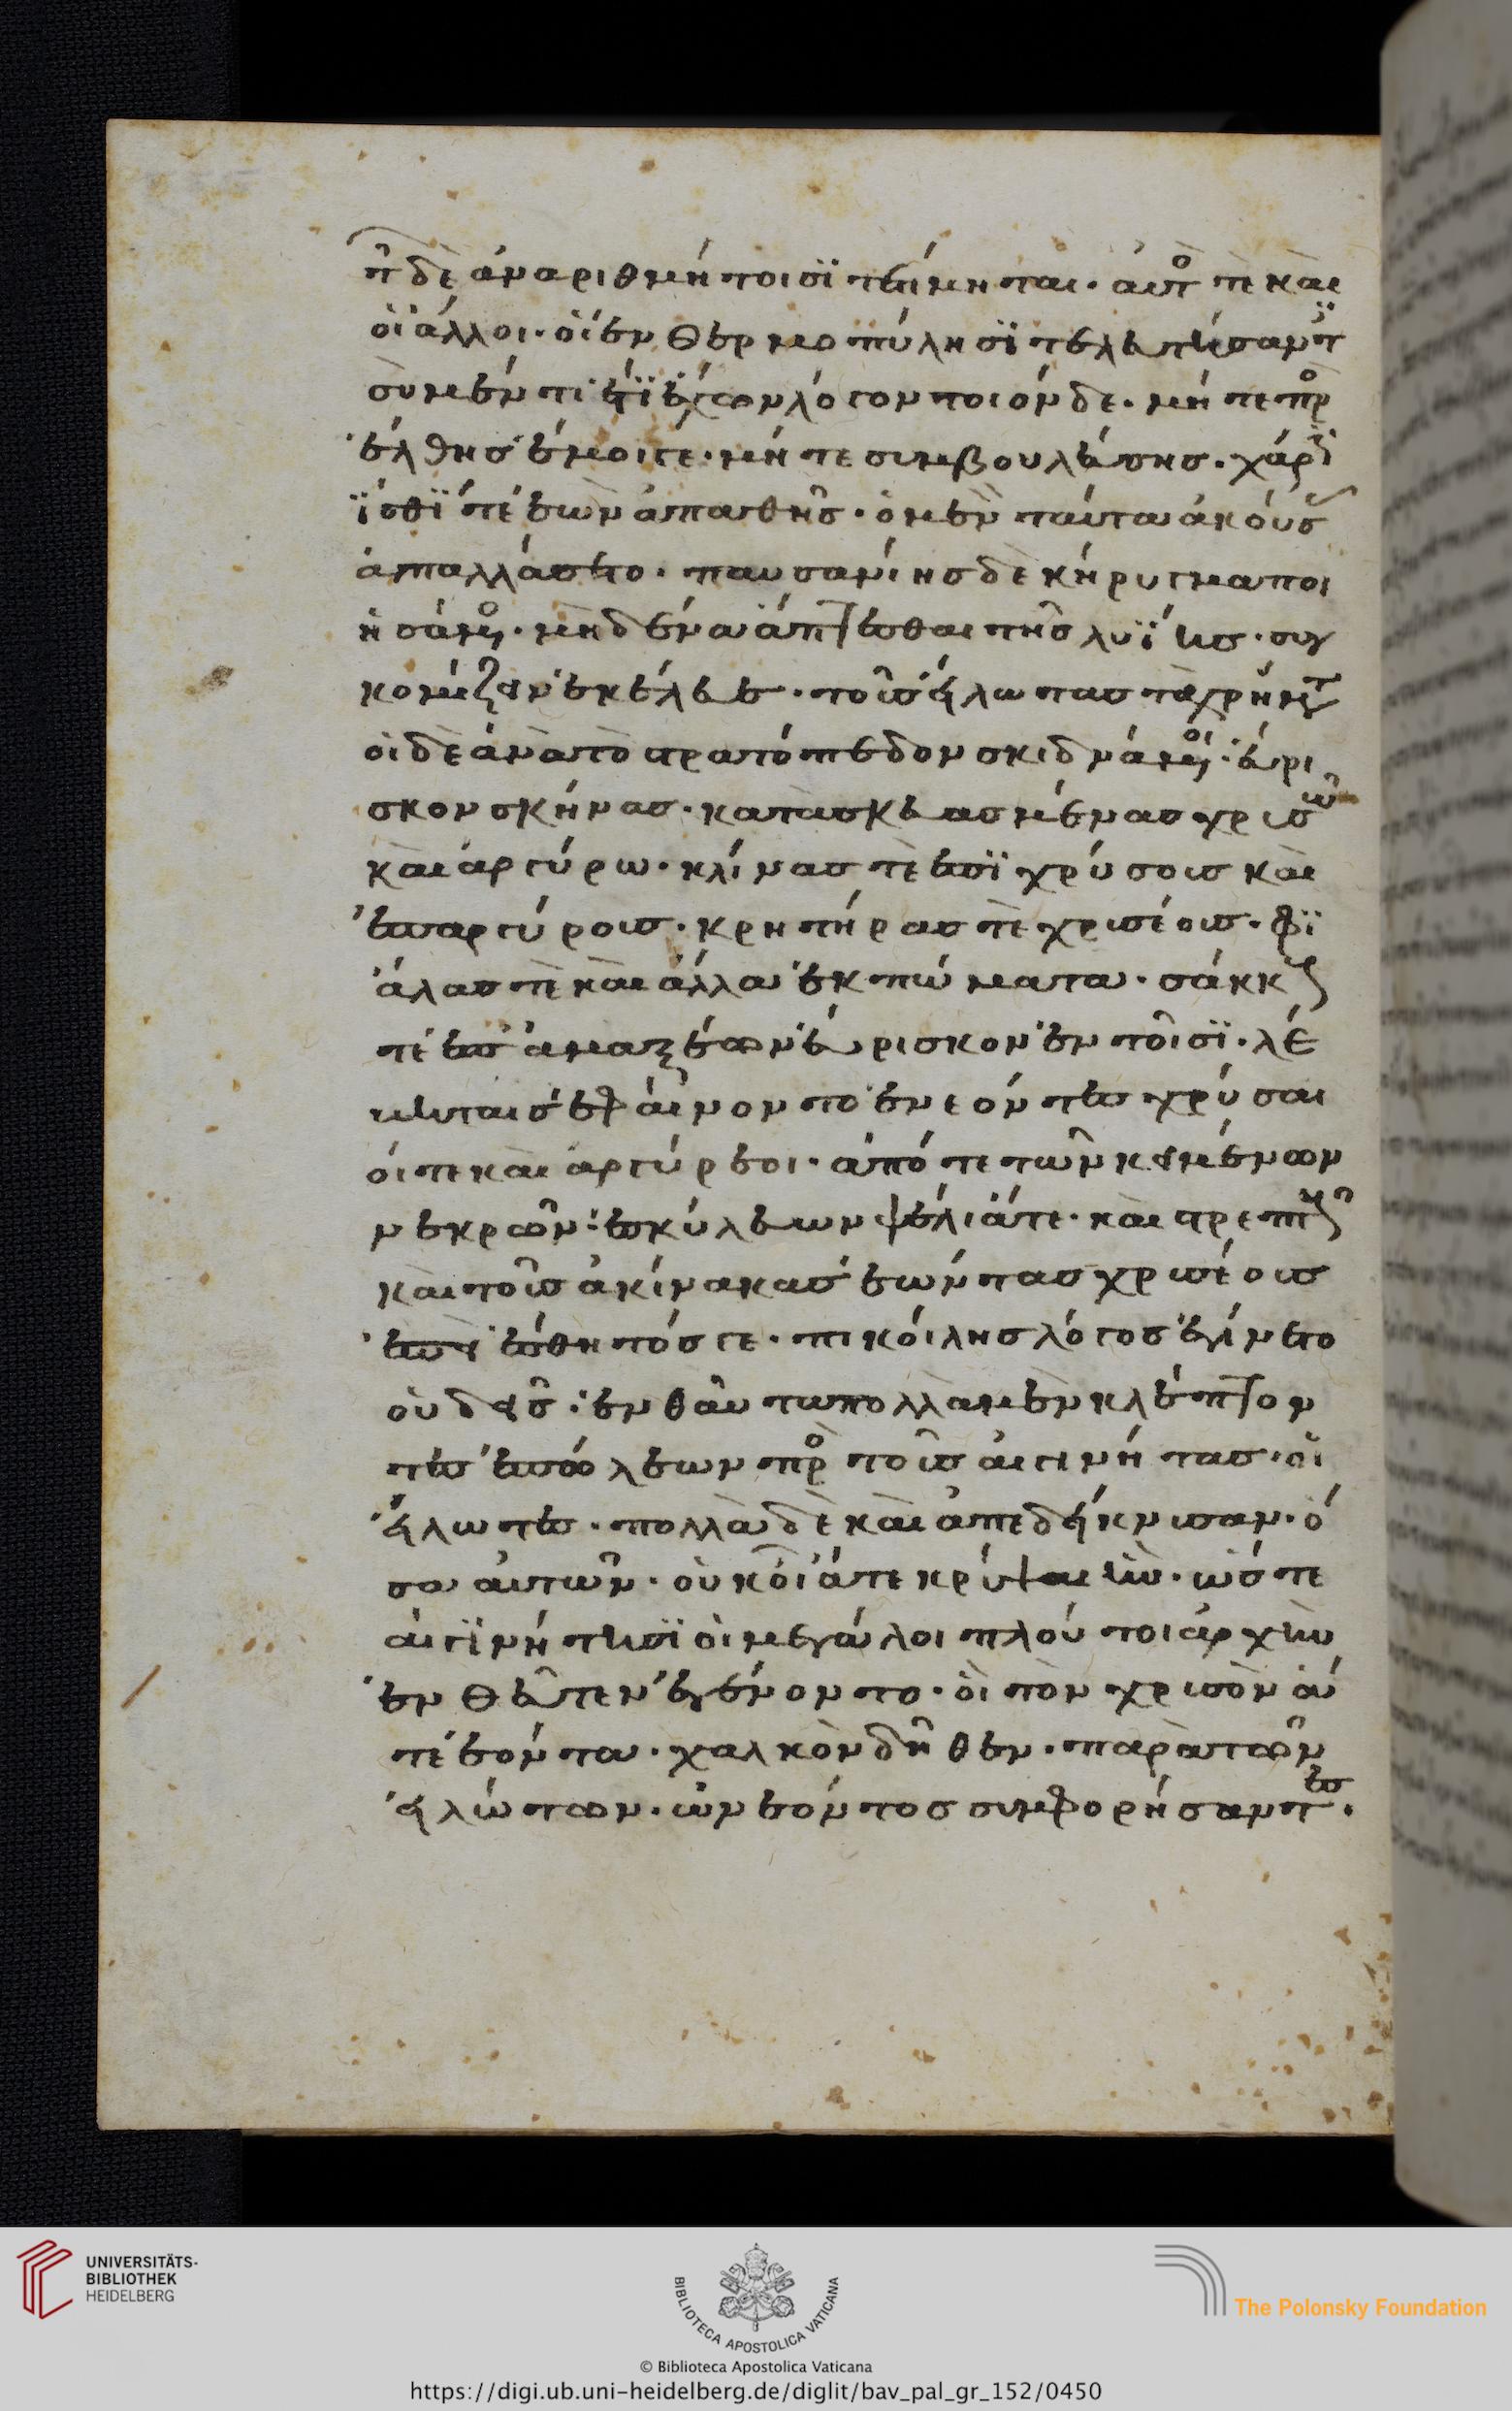 τῆδὲ ἀναριθμήτοισϊ τετίμηται. ἀυτὸς τὲ καὶ
οἱ ἄλλοι. οἱ ἐν Θερμοπύλησϊ τελευτήσαντες
σὺ μέν τι ἔτϊ ἔχων λόγον τοιόνδε. μήτε πρὸς
έλθης ἔμοιγε. μήτε συμβουλεύσης. χάρϊν
ἴσθϊ τέ ἐὼν ἀπαθῆς. ὁ μὲν ταύτα ἀκούσας
ἀπαλλάσετο. παυσανίης δὲ κήρυγμα ποι
ησάμενος. μὴδένα ἅπτεσθαι τῆς λυΐης. συγ
κομίζειν ἐκέλευε. τοὺς εἵλωτας τὰ χρήματα
οἱ δὲ ἀνὰ τὸ στρατόπεδον σκιδνάμενοι. ἕυρι
σκον σκήνας. κατασκευασμένας χρυσῶ
καὶ ἀργύρω. κλίνας τὲ ἐπϊχρύσους καὶ
ἐπαργύρους. κρητήρας τὲ χρυσέους. φϊ
άλας τὲ καὶ ἄλλα ἐκπώματα. σάκκους
τέ ἐπ' ἀμαξέων ἕυρισκον ἐν τοῖσϊ. λέ
βηταις ἐφαίνοντο ἐνεόντες χρύσαι
όι τε καὶ ἀργύρεοι. ἀπό τε τῶν κειμένων
νεκρῶν. ἐσκύλευων ψέλιά τε. καὶ στρεπτοὺς
καὶ τοὺς ἀκίνακας ἐώντας χρυσέους
ἐπεὶ ἐσθητόσγε. πικόιλης λόγος ἐγίνετο
οὐδεῖς. ἐνθαῦτα πολλὰ μὲν κλέπτον
τες ἐπόλεων πρὸς τοὺς ἀιγινήτας. οἱ
εἵλωτες. πολλὰ δὲ καὶ ἀπεδείκνυσαν. ὅ
σα ἀυτῶν. οὐκ οἷά τε κρύψαι ἦν. ὥστε
ἀιγϊνήτησϊ οἱ μεγάλοι πλούτοι ἀρχὴν
ἐνΘεῦτεν ἐγένοντο. οἱ τὸν χρυσὸν ἅ
τέ ἐόντα. χαλκὸν δῆθεν. παρὰ τῶν
εἱλώτων. ὠνέοντος συμφορήσαντες.

UNIVERSITÄTS-
BIBLIOTHEK
HEIDELBERG
BIBLIOTECA APOSTOLICA VATICANA
The Polonsky Foundation
© Biblioteca Apostolica Vaticana
https://digi.ub.uni-heidelberg.de/diglit/bav_pal_gr_152/0450